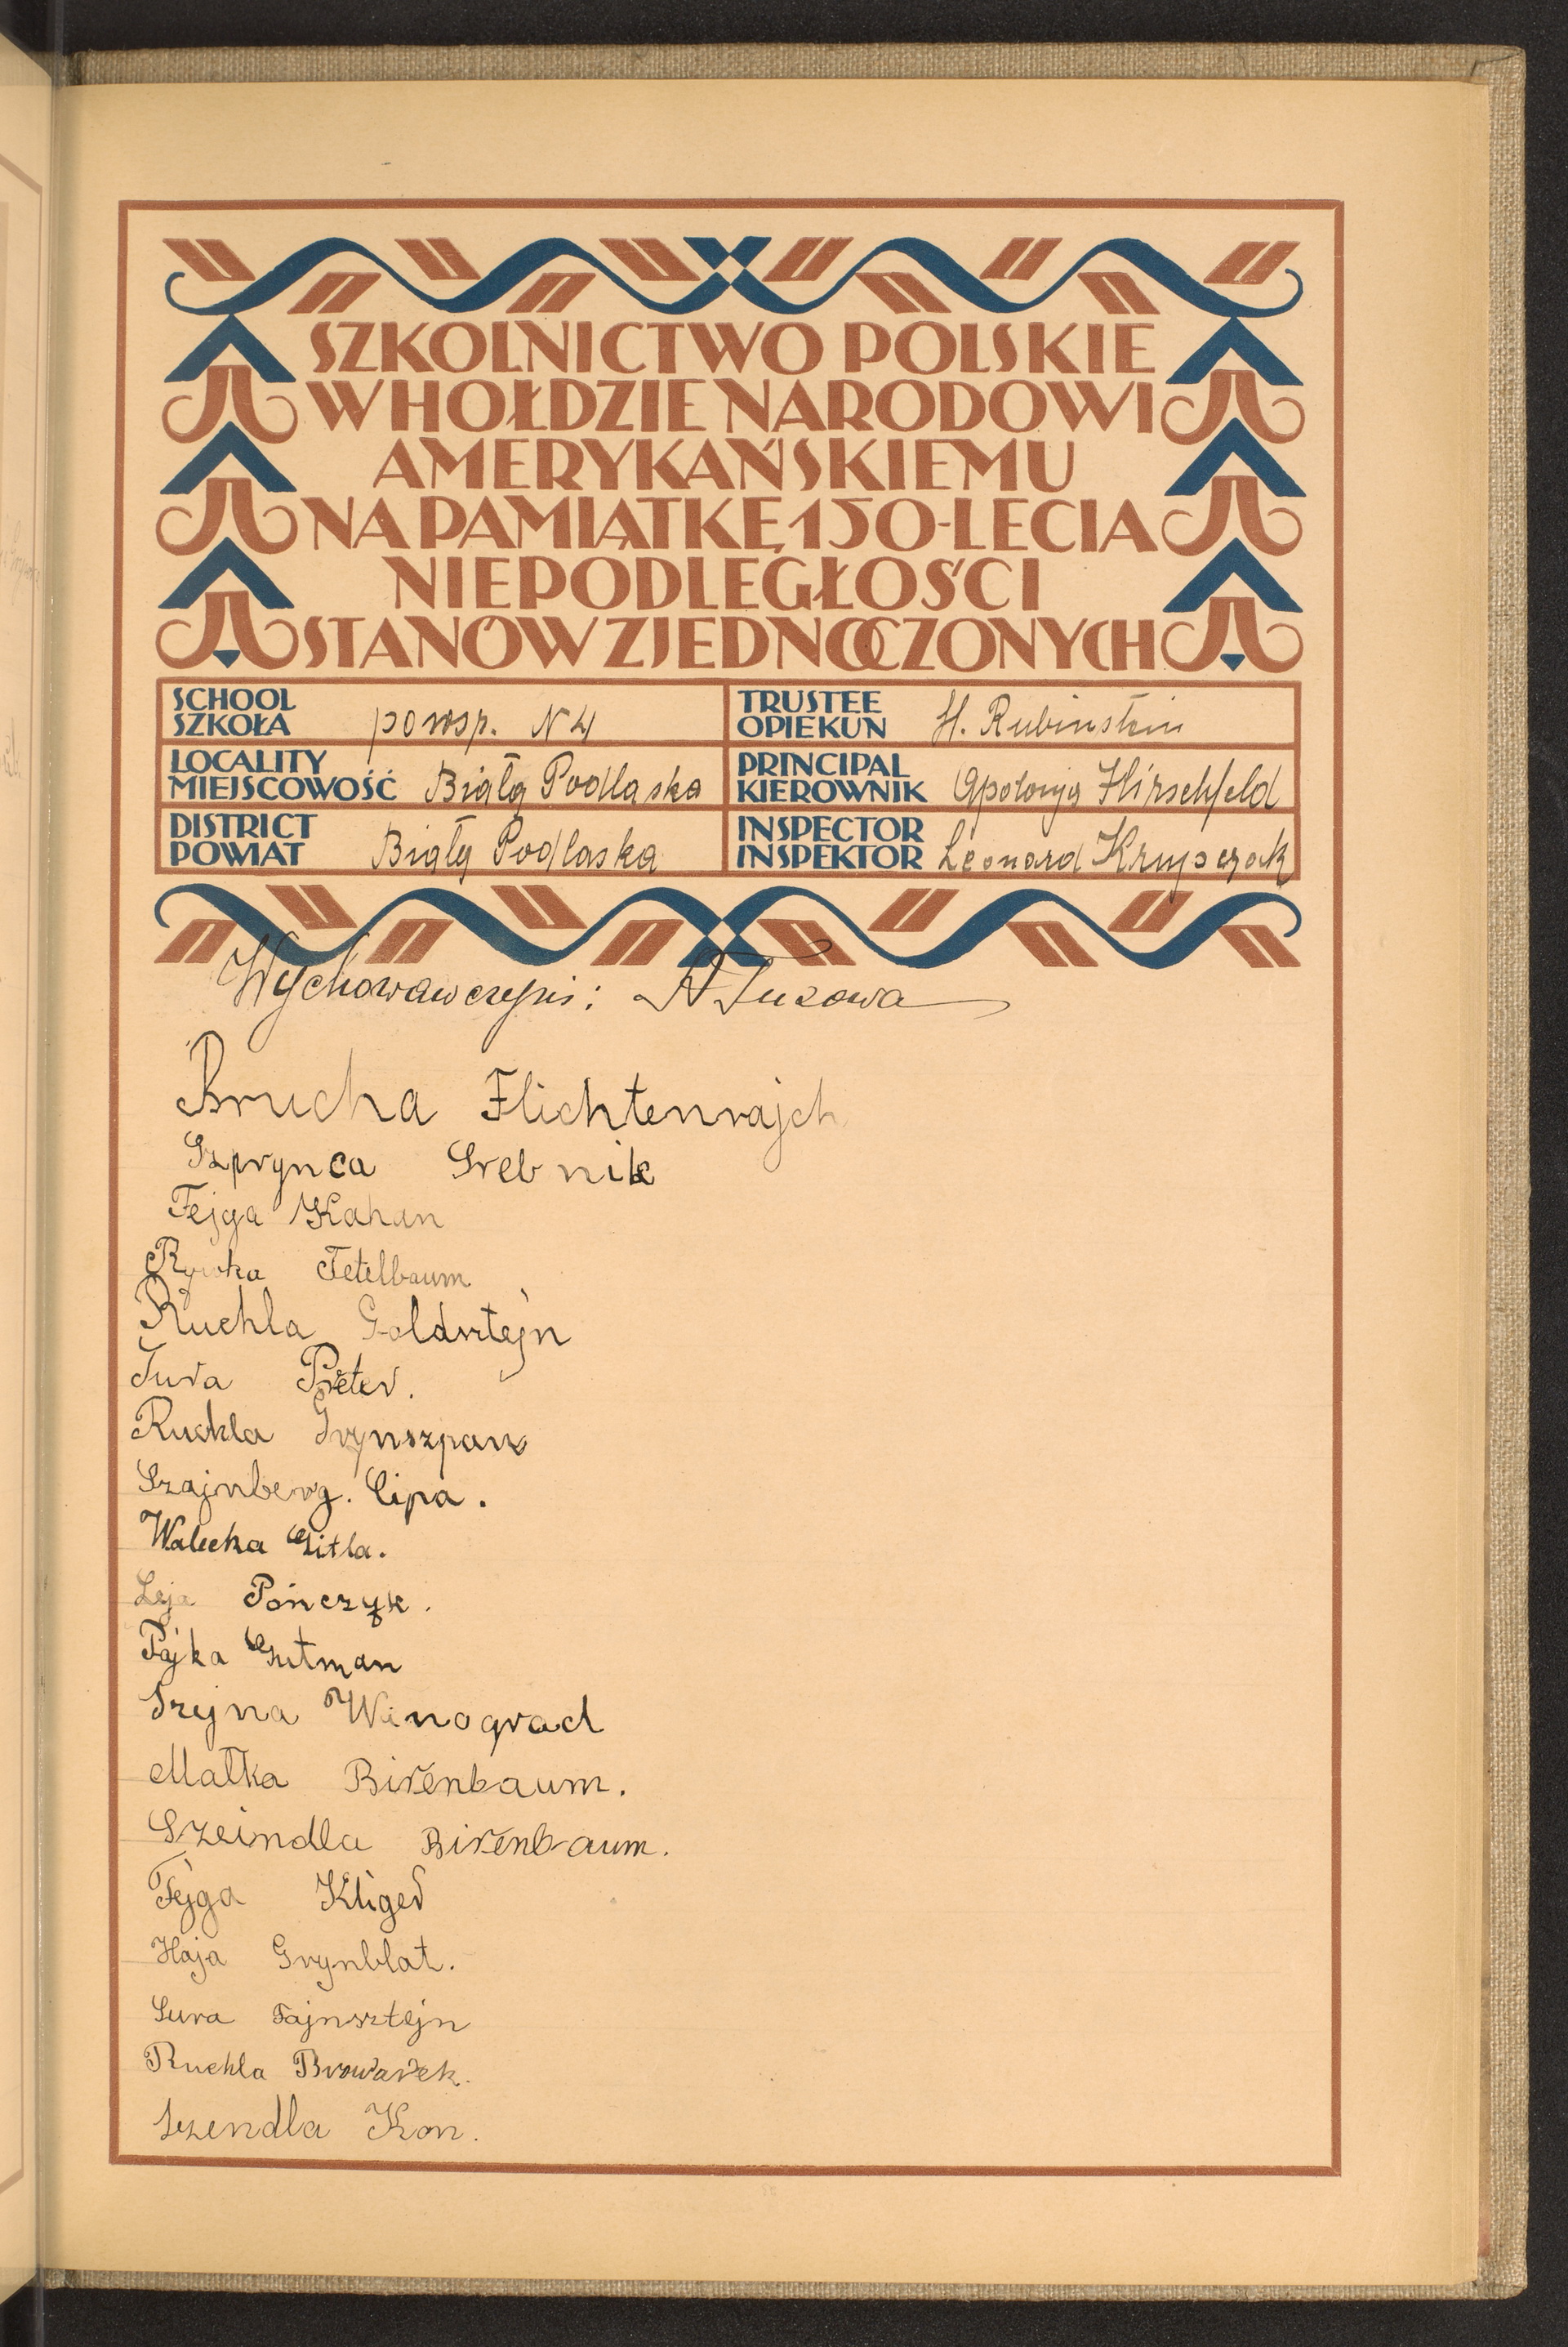 SZKOLNICTWO POLSKIE
W HOŁDZIE NARODOWI
AMERYKAŃSKIEMU
NA PAMIĄTKĘ 150-LECIA
NIEPODLEGŁOŚCI
STANÓW ZJEDNOCZONYCH
SCHOOL
SZKOŁA powsp. N 4
TRUSTEE
OPIEKUN H. Rubinstein
LOCALITY
MIEJSCOWOŚĆ Biała Podlaska
PRINCIPAL
KIEROWNIK Apolonja Hirschfeld
DISTRICT
POWIAT Biała Podlaska
INSPECTOR
INSPEKTOR Leonard
Wychowawczyni:
Brucha Flichtenrajch
Szprynca Srebnik
Fejga Kahan
Rywka Tetelbaum
Ruchla Goldsztejn
Sura
Ruchla Grynszpan
Szajnberg. Cipa.
Walecka Gitla.
Leja Pończyk.
Fajka Gutman
Szejna Winograd
Małka Birenbaum.
Szeindla Birenbaum.
Fejga Kliger
Haja Grynblat.
Sura Fajnsztejn
Ruchla Browarek.
Szendla Kon.